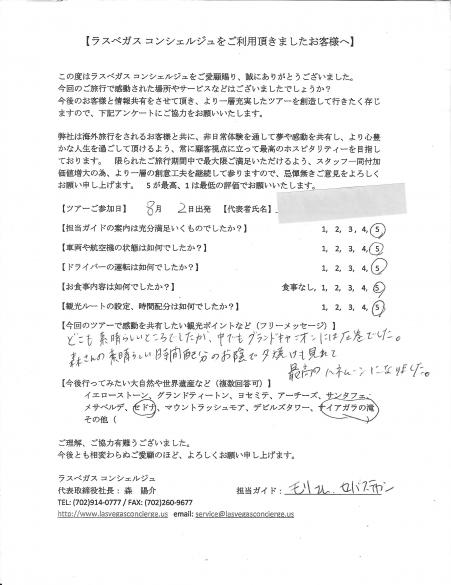 【ラスベガス コンシェルジュをご利用頂きましたお客様へ】
この度はラスベガス コンシェルジュをご愛顧賜り、誠にありがとうございました。
今回のご旅行で感動された場所やサービスなどはございましたでしょうか?
今後のお客様と情報共有をさせて頂き、より一層充実したツアーを創造して行きたく存じ
ますので、下記アンケートにご協力をお願いいたします。
弊社は海外旅行をされるお客様と共に、非日常体験を通して夢や感動を共有し、より心豊
かな人生を過ごして頂けるよう、常に顧客視点に立って最高のホスピタリティーを目指し
ております。 限られたご旅行期間中で最大限ご満足いただけるよう、スタッフ一同付加
価値増大の為、より一層の創意工夫を継続して参りますので、忌憚無きご意見をよろしく
お願い申し上げます。 5が最高、1は最低の評価でお願いいたします。
【ツアーご参加日】 8月 2日出発 【代表者氏名】
【担当ガイドの案内は充分満足いくものでしたか?】 1, 2, 3, 4, 5
【車両や航空機の状態は如何でしたか?】 1, 2, 3, 4, 5
【ドライバーの運転は如何でしたか?】 1, 2, 3, 4, 5
【お食事内容は如何でしたか?】 食事なし, 1, 2, 3, 4, 5
【観光ルートの設定、時間配分は如何でしたか?】 1, 2, 3, 4, 5
【今回のツアーで感動を共有したい観光ポイントなど(フリーメッセージ)】
どこも素晴らしいところでしたが、中でもグランドキャニオンには圧巻でした。
森さんの素晴らしい時間配分のお陰で夕焼けも見れて
最高のハネムーンになりました。
【今後行ってみたい大自然や世界遺産など(複数回答可)】
イエローストーン、グランドティートン、ヨセミテ、アーチーズ、サンタフェ、
メサベルデ、セドナ、マウントラッシュモア、デビルズタワー、ナイアガラの滝
その他(
ご理解、ご協力有難うございました。
今後とも相変わらぬご愛顧のほど、よろしくお願い申し上げます。
ラスベガス コンシェルジュ
代表取締役社長: 森 陽介 担当ガイド:
TEL: (702)914-0777 / FAX: (702)260-9677
http://www.lasvegasconcierge.us email: service@lasvegasconcierge.us